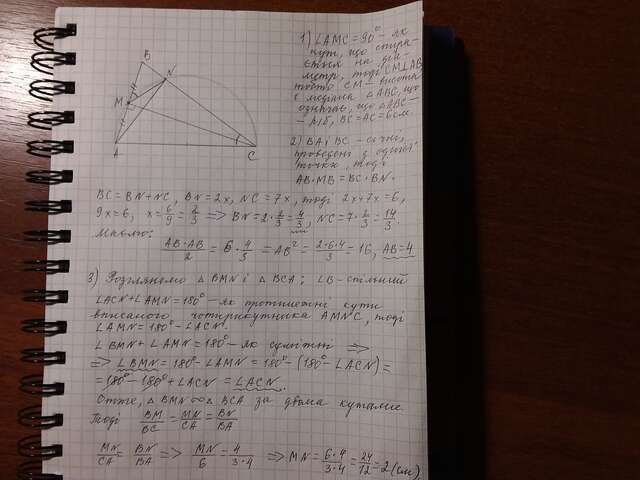 B
N
M
A
C
1) ∠AMC = 90° – як
кут, що спира-
ється на діа-
метр, тоді CM⊥AB,
тобто CM – висота
і медіана △ABC, що
означає, що △ABC –
– р/б, BC = AC = 6см.
2) BA і BC – січні,
проведені з однієї
точки, тоді
AB·MB = BC·BN.
BC = BN + NC, BN = 2x, NC = 7x, тоді 2x+7x = 6,
9x = 6, x = 6/9 = 2/3 => BN = 2·2/3 = 4/3, NC = 7·2/3 = 14/3.
Маємо:
AB·AB/2 = 6·4/3 = AB² = 2·6·4/3 = 16, AB = 4
3) Розглянемо △BMN і △BCA; ∠B – спільний
∠ACN + ∠AMN = 180° – як протилежні кути
вписаного чотирикутника AMNC, тоді
∠AMN = 180° – ∠ACN.
∠BMN + ∠AMN = 180° – як суміжні =>
=> ∠BMN = 180° – ∠AMN = 180° – (180° – ∠ACN) =
= 180° – 180° + ∠ACN = ∠ACN.
Отже, △BMN ∾ △BCA за двома кутами.
Тоді BM/BC = MN/CA = BN/BA
MN/CA = BN/BA => MN/6 = 4/3·4 => MN = 6·4/3·4 = 24/12 = 2 (см)